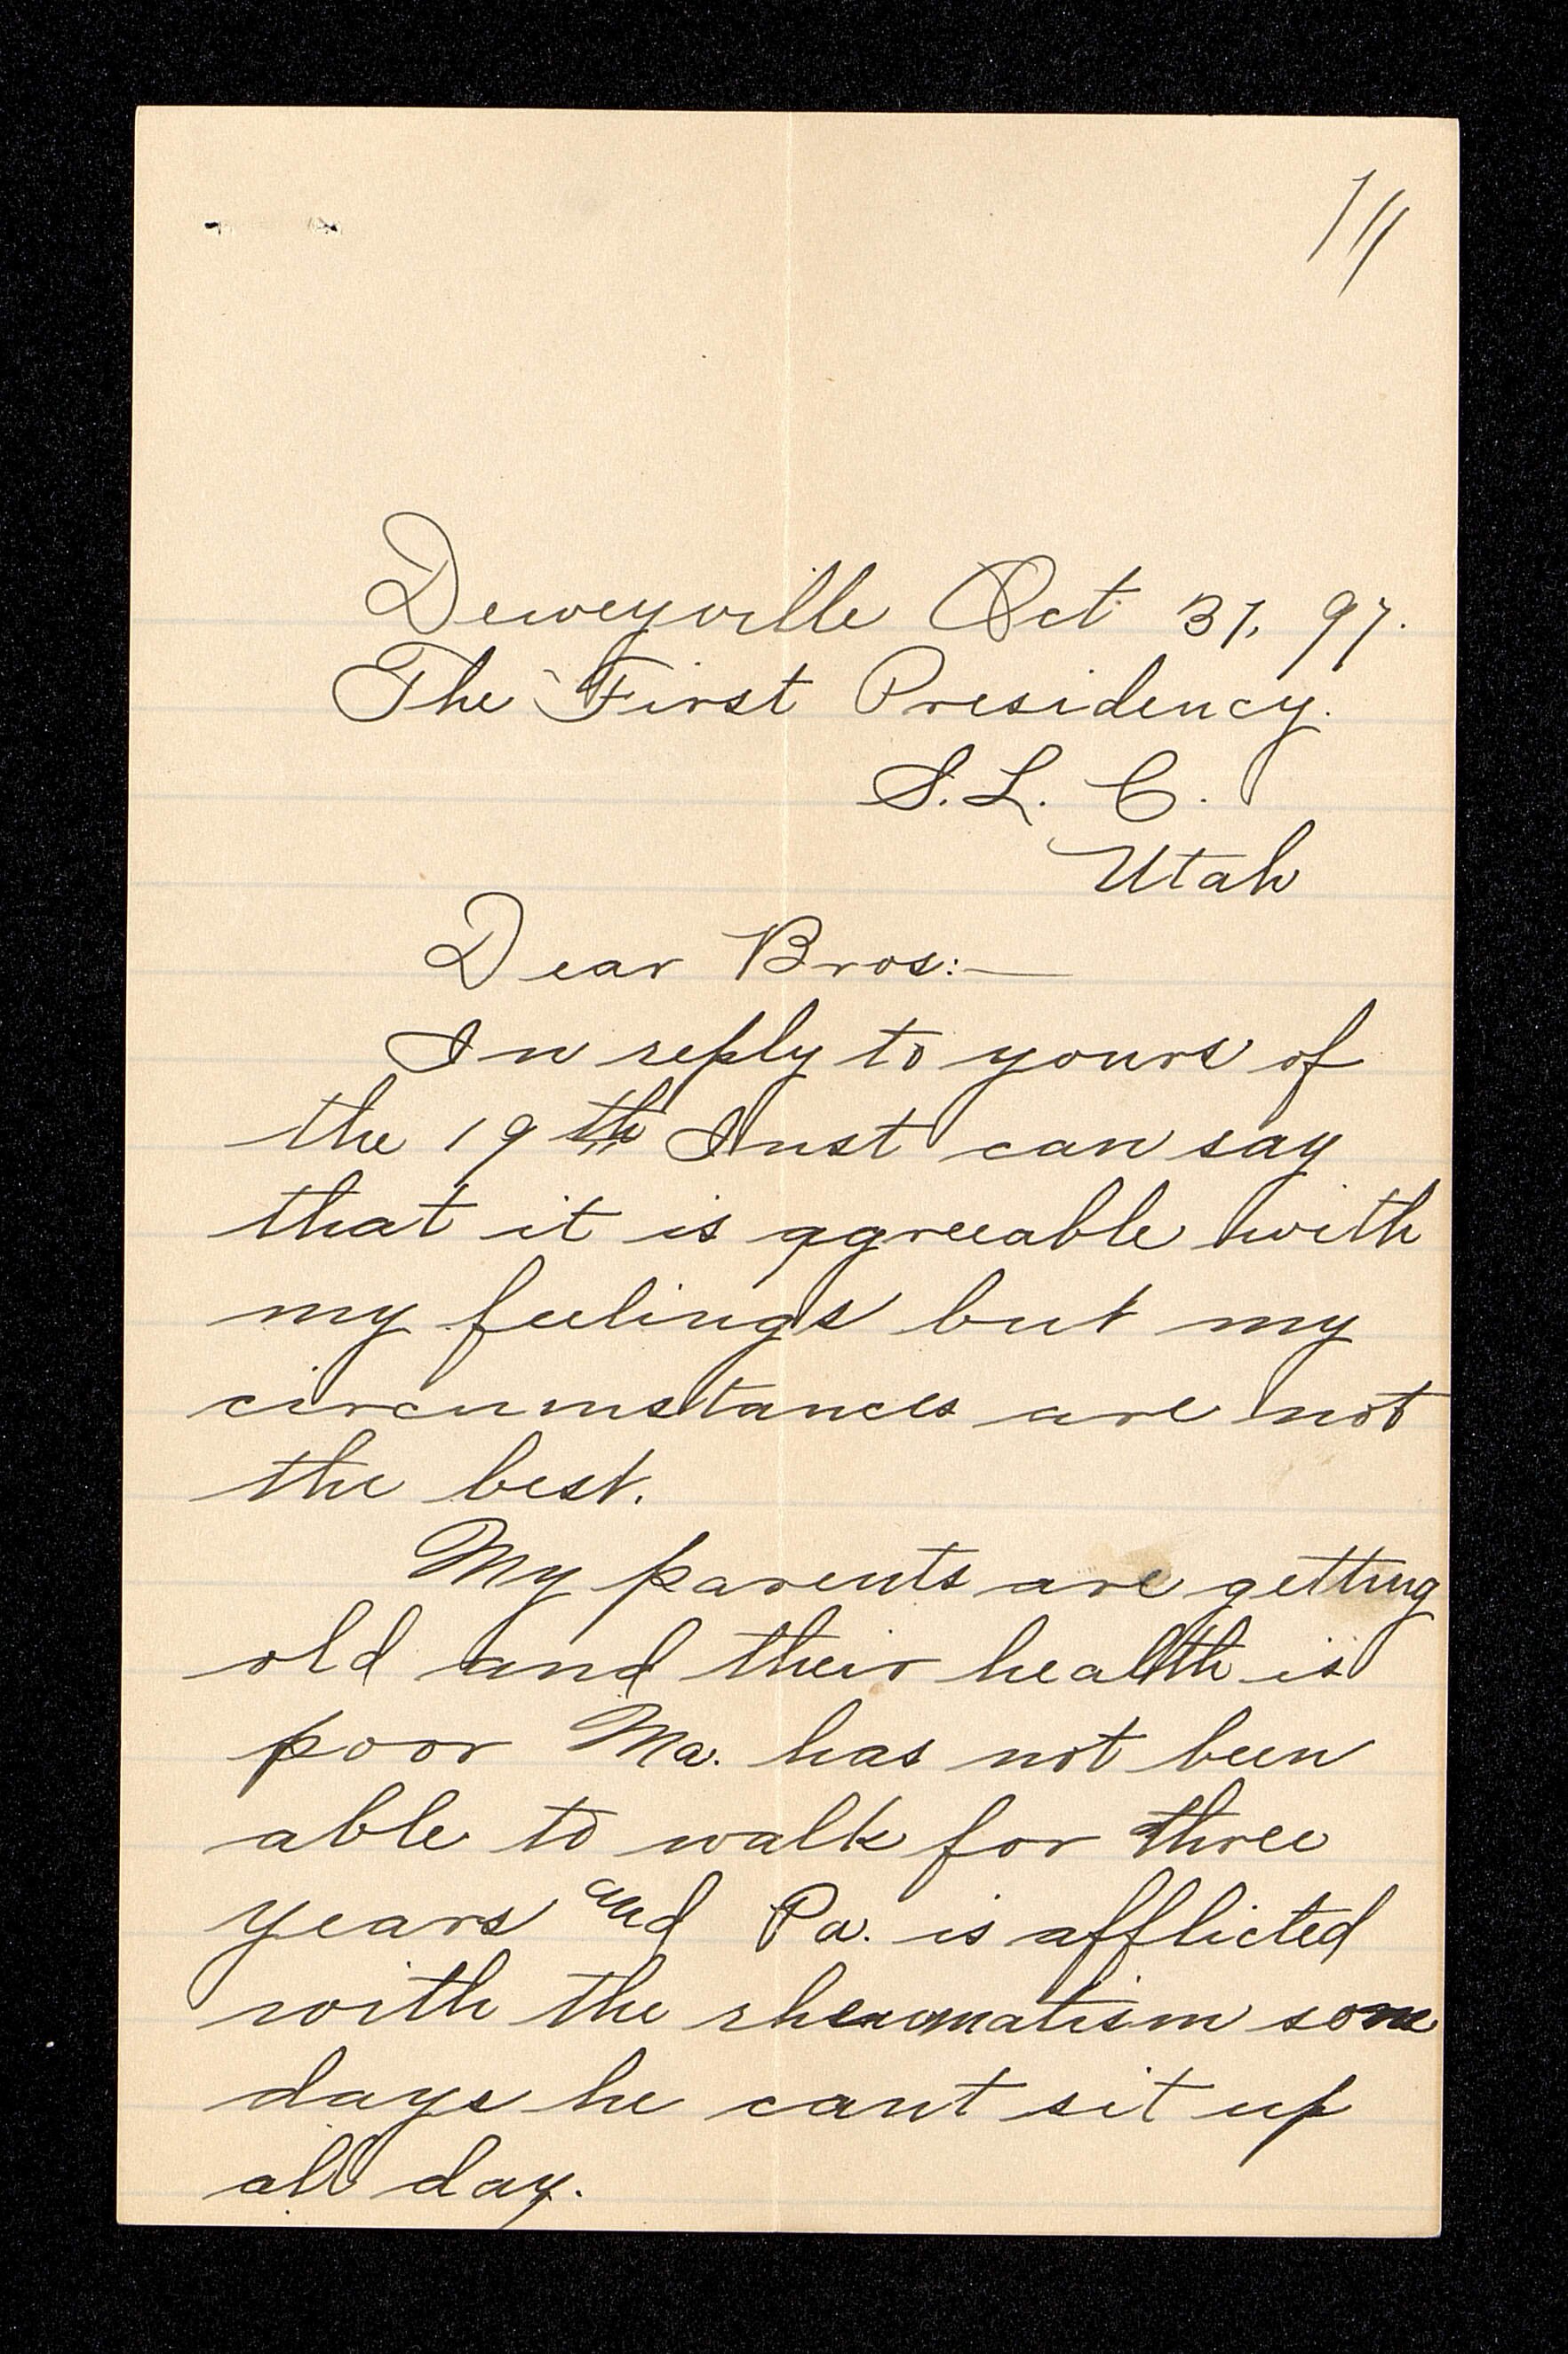 Deweyville Oct 31, 97.
The First Presidency.
S. L. C.
Utah
Dear Bros:—
In reply to yours of
the 19th Inst can say
that it is agreeable with
my feelings but my
circumstances are not
the best.
My parents are getting
old and their health is
poor Ma. has not been
able to walk for three
years and Pa. is afflicted
with the rheumatism some
days he cant sit up
all day.